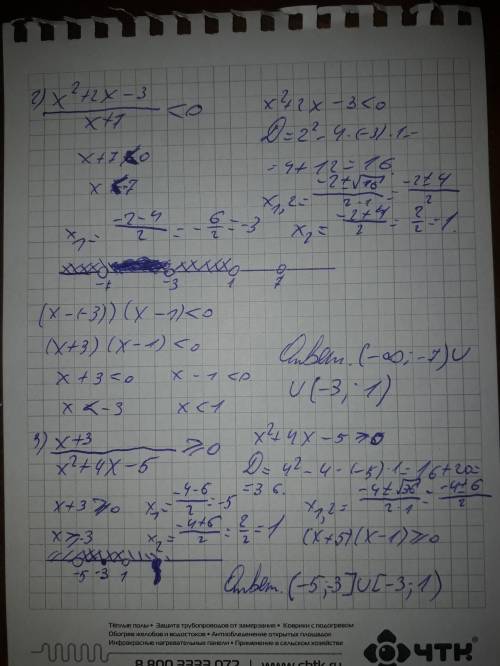 2) (x²+2x-3)/(x+7) < 0
x²+2x-3<0
D=2²-4·(-3)·1=
x+7<0
=4+12=16
x<-7
x1,2=(-2±√16)/(2·1)=(-2±4)/2
x1=(-2-4)/2=-6/2=-3
x2=(-2+4)/2=2/2=1.
-7 -3 1 7
(x-(-3))(x-1)<0
(x+3)(x-1)<0
Ответ. (-∞;-7)∪
x+3<0 x-1<0
∪(-3;1)
x<-3 x<1
3) (x+3)/(x²+4x-5) ≥0
x²+4x-5≥0
D=4²-4·(-5)·1=16+20=
=36.
x+3≥0 x1=(-4-6)/2=-5
x1,2=(-4±√36)/(2·1)=(-4±6)/2
x≥-3 x2=(-4+6)/2=2/2=1
(x+5)(x-1)≥0
-5 -3 1
Ответ. (-5;-3]∪[-3;1)
Тёплые полы • Защита трубопроводов от замерзания • Коврики с подогревом
Обогрев желобов и водостоков • Антиобледенение открытых площадок
Инфракрасные нагревательные панели • Применение в сельском хозяйстве
8 800 3333 072 | www.chtk.ru
ЧТК